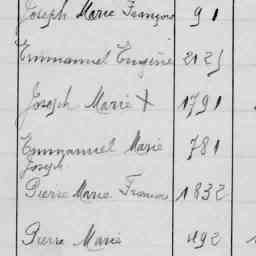 Joseph Marie François 91
Emmanuel Eugène 2125
Joseph Marie X 1791
Emmanuel Marie 781
Joseph
Pierre Marie Francois 1832
Pierre Marie 492